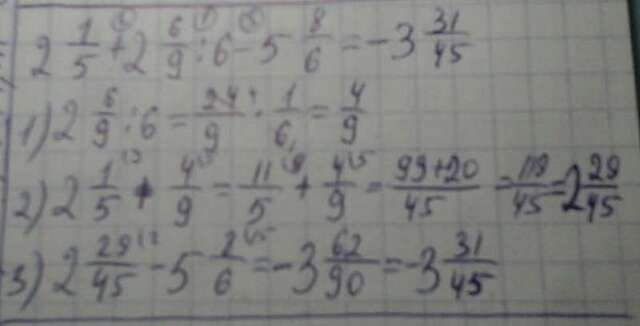 2 1/5 + 2 6/9 : 6 - 5 8/6 = -3 31/45
1) 2 6/9 : 6 = 24/9 · 1/6 = 4/9
2) 2 1/5 + 4/9 = 11/5 + 4/9 = 99+20/45 = 119/45 = 2 29/45
3) 2 29/45 - 5 2/6 = -3 62/90 = -3 31/45